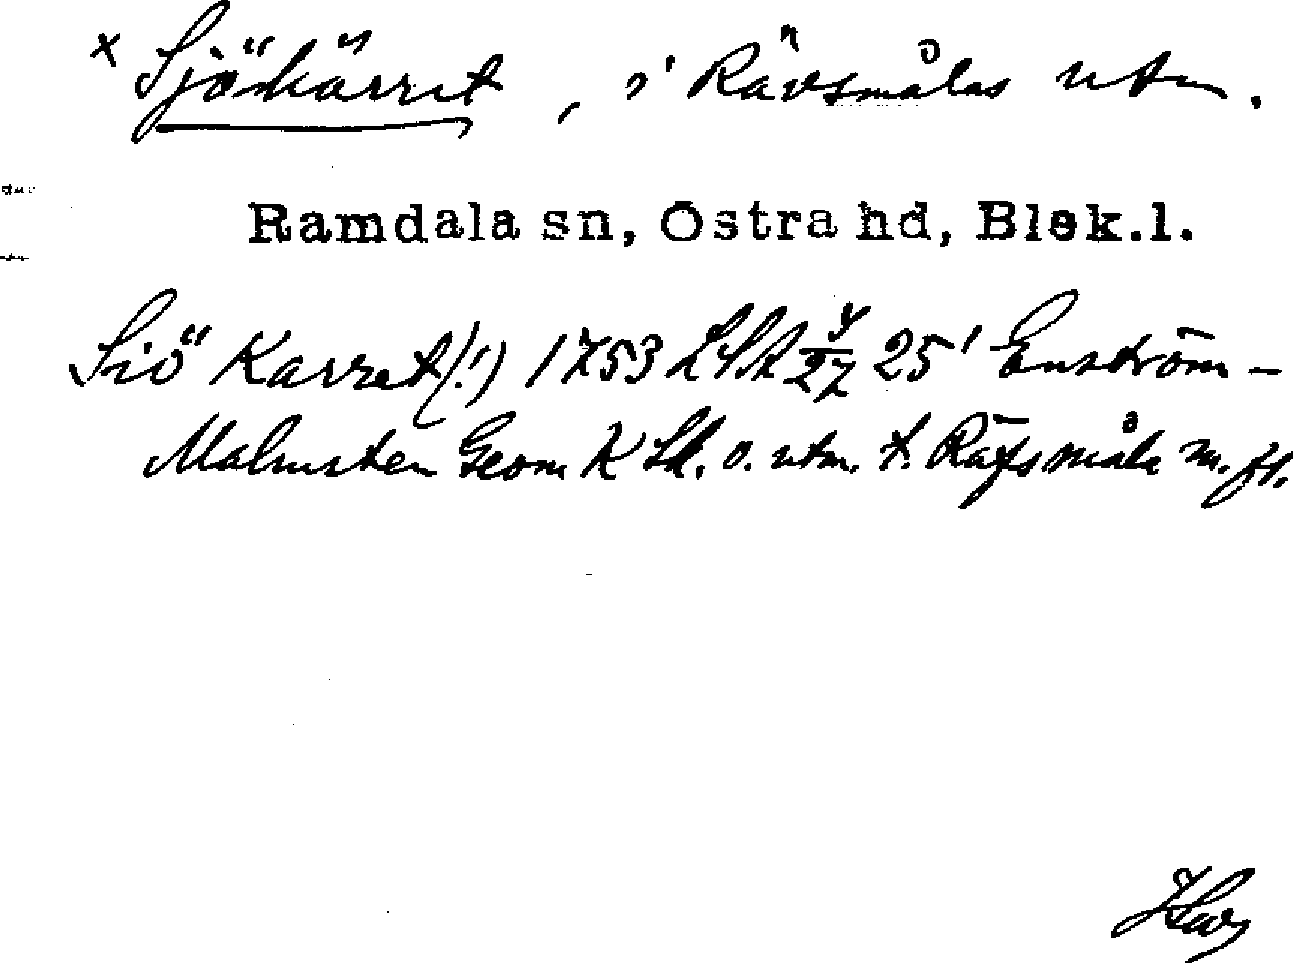 x Sjökärret, i Rävsmålas utm.
Ramdala sn, Östra hd, Blek.l.
Siö Karret(!) 1753 LSA 4/27 25 Enström-
Malmsten Geom K Sk. o. utm. t. Räfsmåla m. fl.